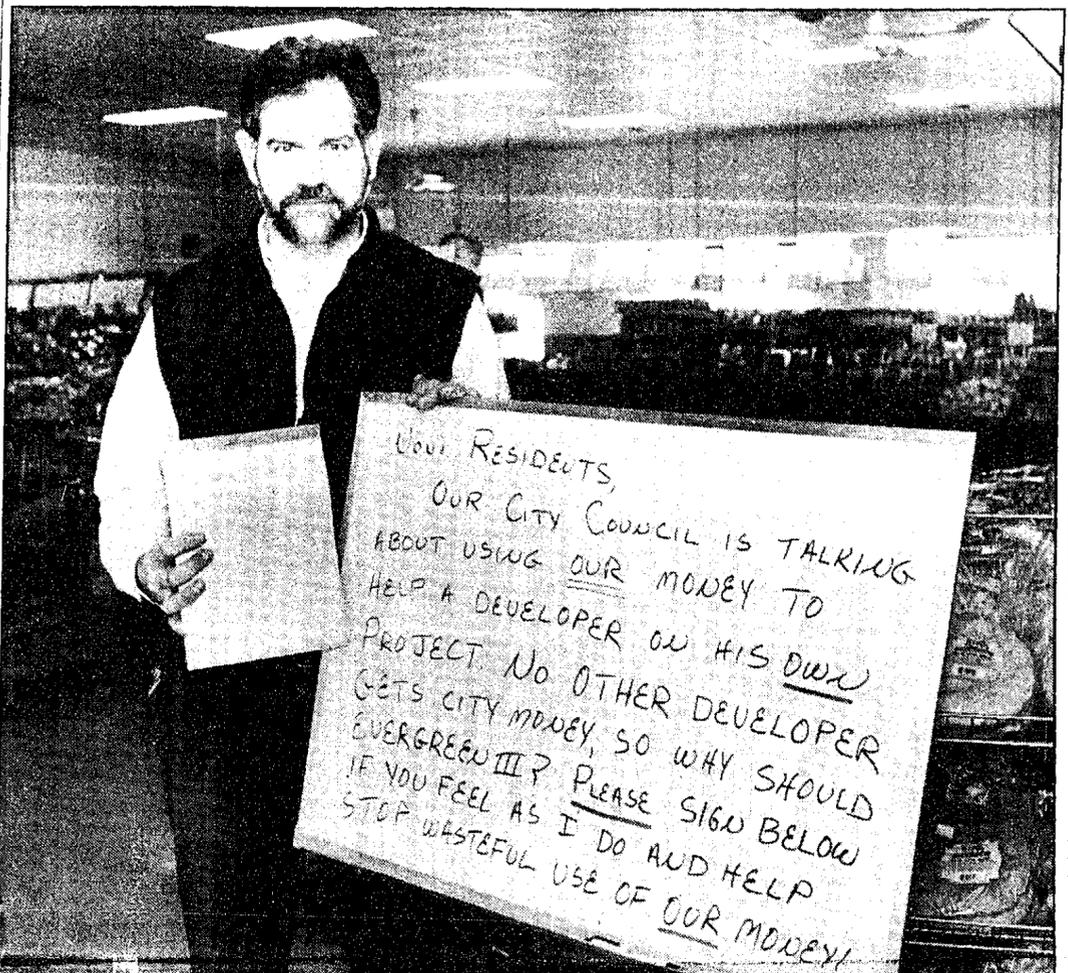 RESIDENTS,
OUR CITY COUNCIL IS TALKING
ABOUT USING OUR MONEY TO
HELP A DEVELOPER ON HIS OWN
PROJECT. NO OTHER DEVELOPER
GETS CITY MONEY, SO WHY SHOULD
EVERGREEN III? PLEASE SIGN BELOW
IF YOU FEEL AS I DO AND HELP
STOP WASTEFUL USE OF OUR MONEY!